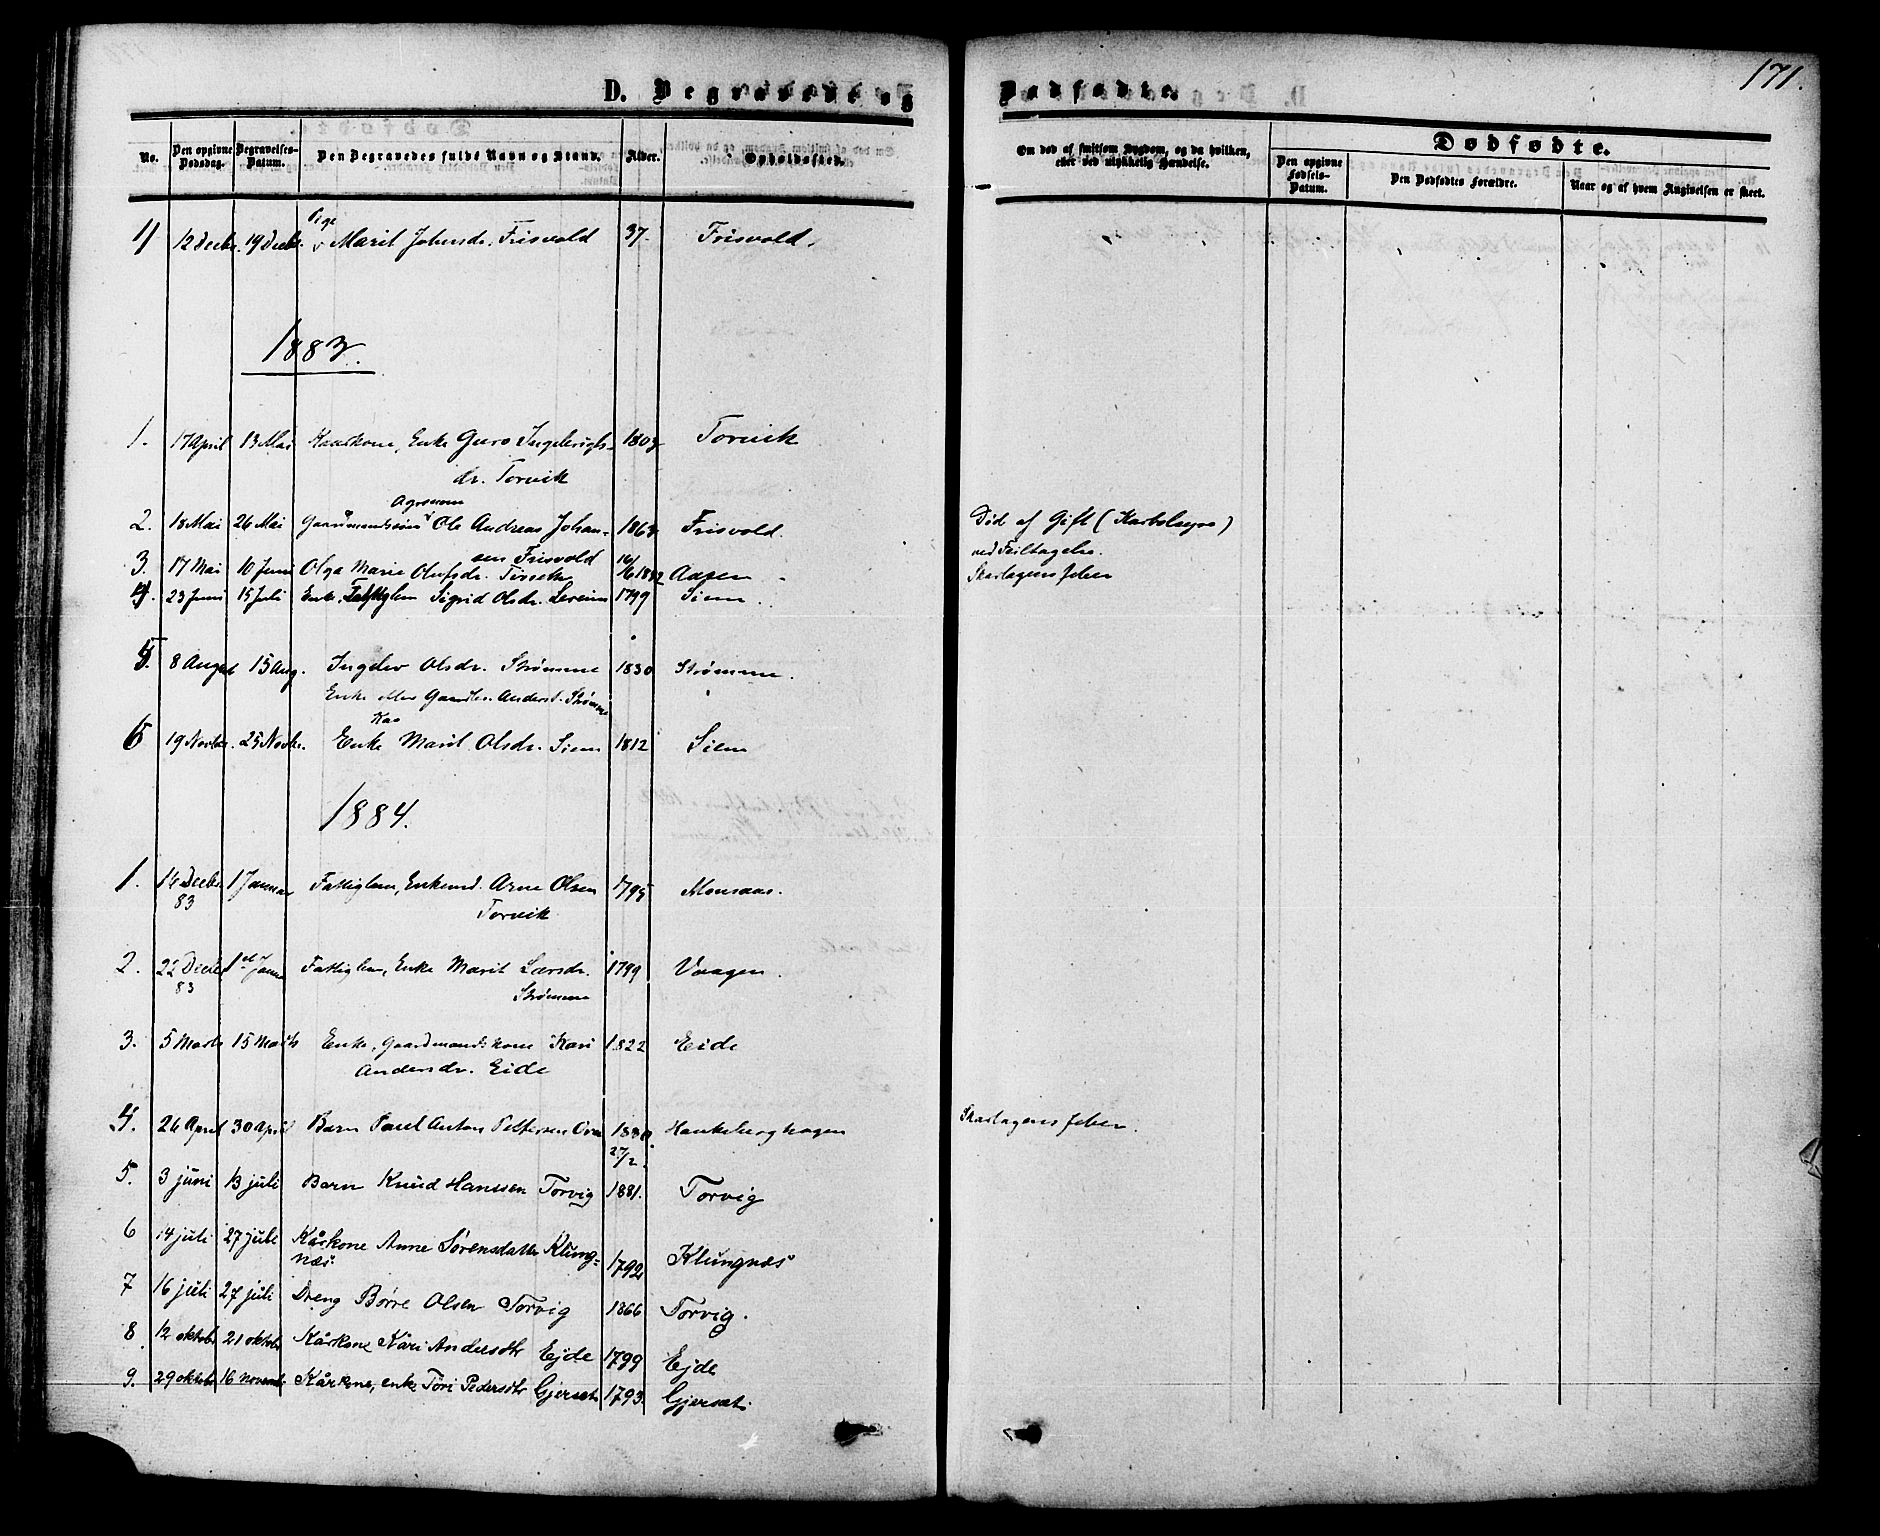 171.
D. Begravede og Dødfødte.
No. Den opgivne Dødsdag. Begravelses-Datum. Den Begravedes fulde Navn og Stand. Alder. Opholdssted. Om død af smitsom Sygdom, og da hvilken, eller ved ulykkelig Hændelse. Dødfødte.
Den opgivne Fødsels-Datum. Den Dødfødtes Forældre. Naar og af hvem Angivelsen er skeet.
Pige
11 12 Decbr. 19 Decbr. Marit Johnsdr. Frisvold 37. Frisvold.
1883.
1. 17 April 13 Mai Kaarkone, Enke Guro Ingebrigts- 1803 Torvik
dr. Torvik
Agronom
2. 18 Mai 26 Mai Gaardmandssøn Ole Andreas Johan- Frisvold. Död af Gift (Karbolsyre)
sen Frisvold ved Feiltagelse.
3. 17 Mai 10 Juni Olga Marie Olufsdr. 1882 Skarlagensfeber
4. 23 Juni 15 Juli Enke, Sigrid Olsdr. 1799 Siem
5. 8 August 15 Aug. Olsdr. Strömme 1830 Strömme.
Enke efter Gaardbr. Anders Strömme
Kaa
6 19 Novbr. 25 Novbr. Enke Marit Olsdr. Siem 1812 Siem
1884.
1. 14 Decbr 1 Januar Fattiglem, Enkemd. Arne Olsen 1795 Monsaas.
83 Torvik
2. 22 Decbr 1st Janu Fattiglem, Enke Marit Larsdr. 1799 Vaagen.
83 Strömme
3. 5 Marts 15 Marts Enke, Gaardmandskone Kari 1822 Eide
Andersdr. Eide
4. 26 April 30 April Barn Paul Anton Pettersen 1880 Haukeberghagen Skarlagensfeber.
27/2.
5. 3 juni 13 juli Barn Knud Hanssen Torvig 1881. Torvig
6 14 juli 27 juli Kårkone Anne Sørensdatter Klung- 1792 Klungnæs
næs.
7 16 juli 27 juli Dreng Børre Olsen Torvig 1866 Torvig.
8 12 oktobr 21 oktobr Kårkone Kari Andersdtr Ejde 1799 Ejde
9. 29 oktobr 16 novemb Kårkone, enke Tori Pedersdtr Gjerset 1793. Gjerset